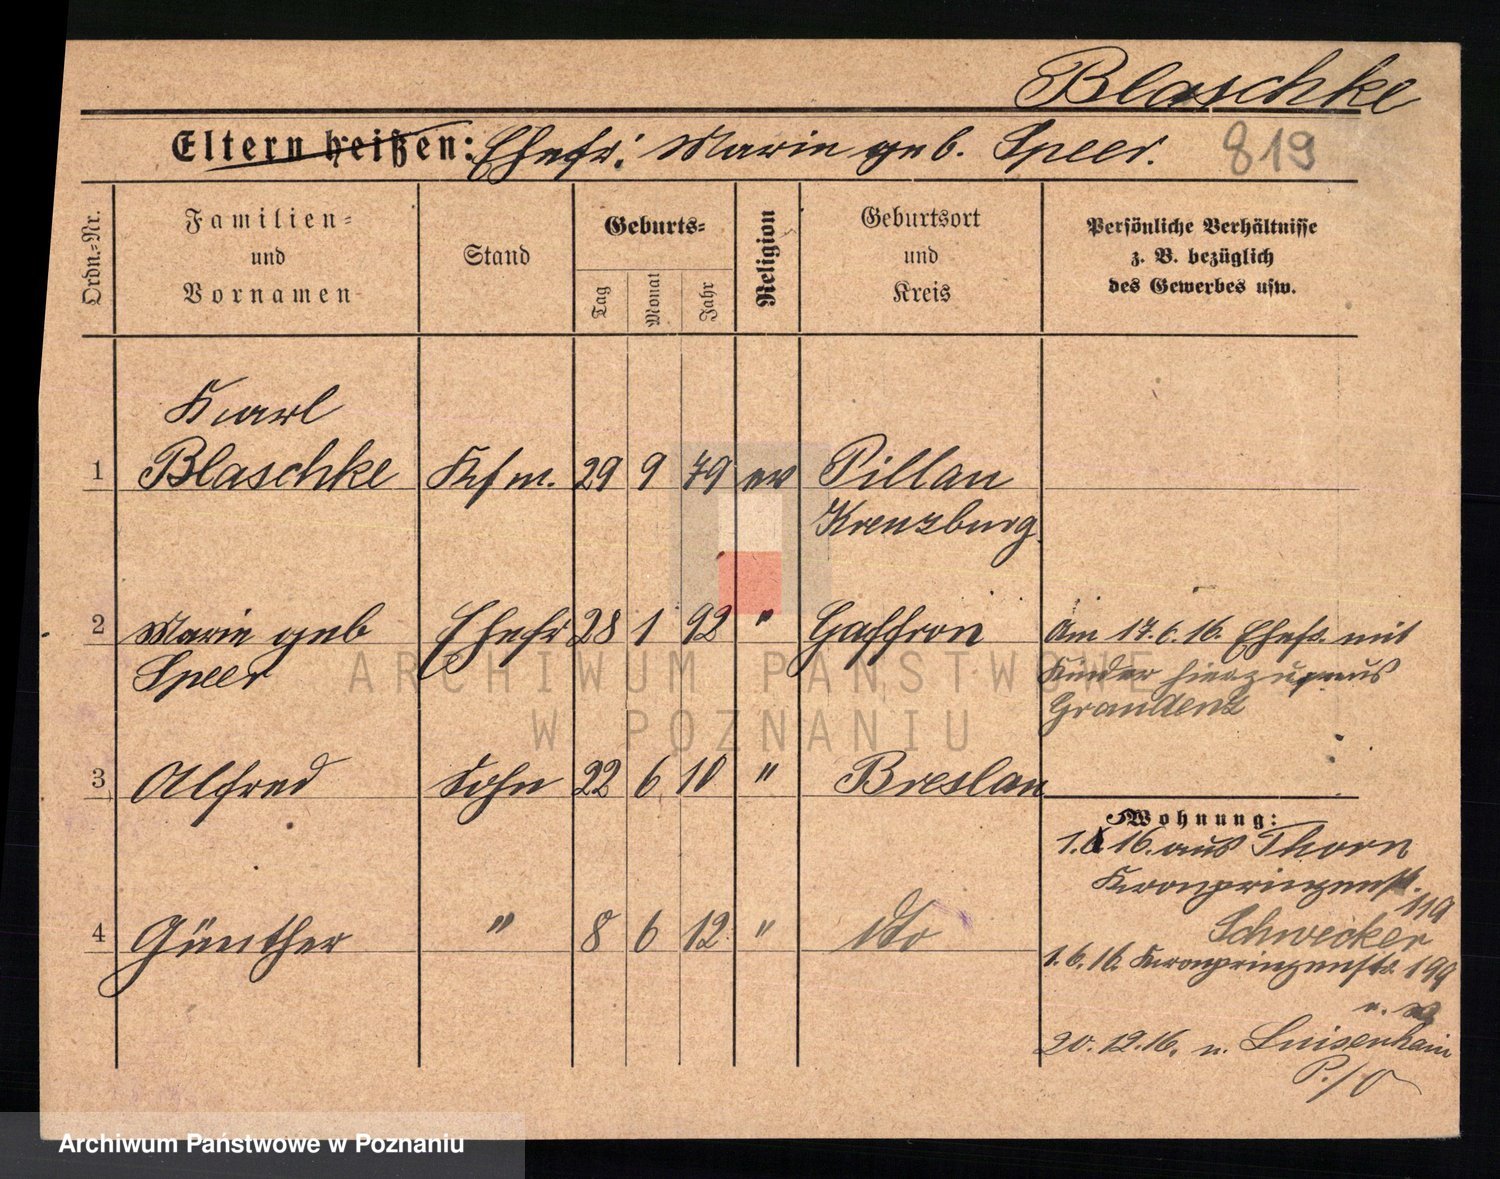 Blaschke
Eltern heißen: Ehefr: Marie geb. Speer. 819
Ordn.-Nr.
Familien-
und
Vornamen
Stand
Geburts-
Tag
Monat
Jahr
Religion
Geburtsort
und
Kreis
Persönliche Verhältnisse
z. B. bezüglich
des Gewerbes usw.
Karl
1 Blaschke Kfm. 29 9 79 ev Pillau
Kreuzburg.
2 Marie geb Ehefr 28 1 92 " Gaffron
Speer
Am 17.6.16. Ehefr. mit
Kinder hierzu aus
Graudenz
3 Alfred Sohn 22 6 10 " Breslau
4 Günther " 8 6 12 " dto
Wohnung:
1. 16. aus Thorn
Kronprinzenst.
119
Schwecker
1.6.16. Kronprinzenstr. 199
20.12.16. n. Luisenhain
P./O
ARCHIWUM PAŃSTWOWE
W POZNANIU
Archiwum Państwowe w Poznaniu